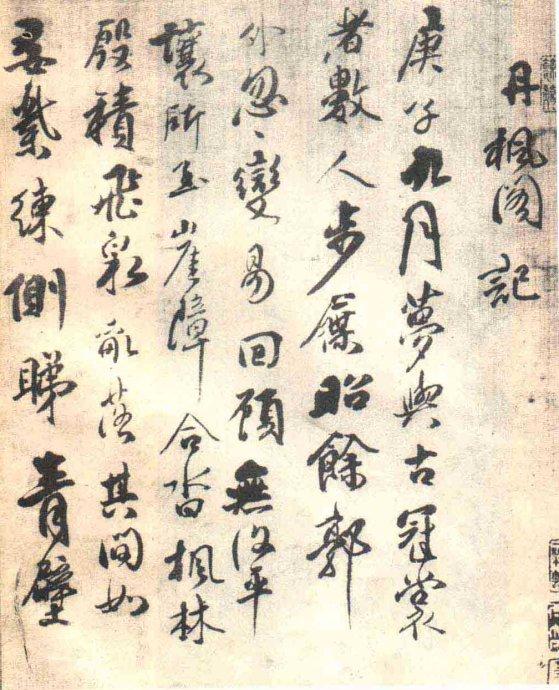 丹楓阁記
庚子九月夢與古冠裳
者數人步屧昭餘郭
外忽〻變易回顧無復平
壤所至崖障合沓楓林
殷積飛泉亂落其間如
縈練側睇青壁